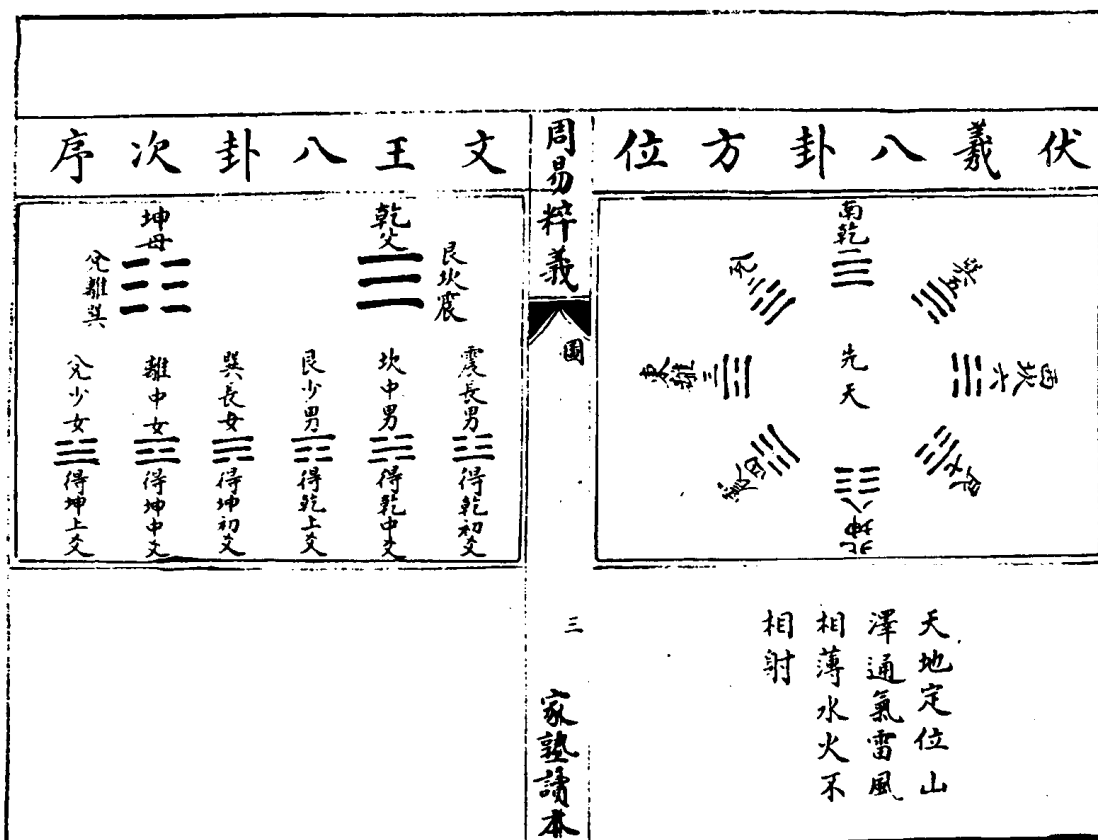 伏羲八卦方位
南乾一
兌二
東離三
震四
巽五
西坎六
艮七
北坤八
先天
天地定位山
澤通氣雷風
相薄水火不
相射
周易粹義
圖
三
家塾讀本
文王八卦次序
乾父
艮坎震
坤母
兌離巽
震長男
得乾初爻
坎中男
得乾中爻
艮少男
得乾上爻
巽長女
得坤初爻
離中女
得坤中爻
兌少女
得坤上爻